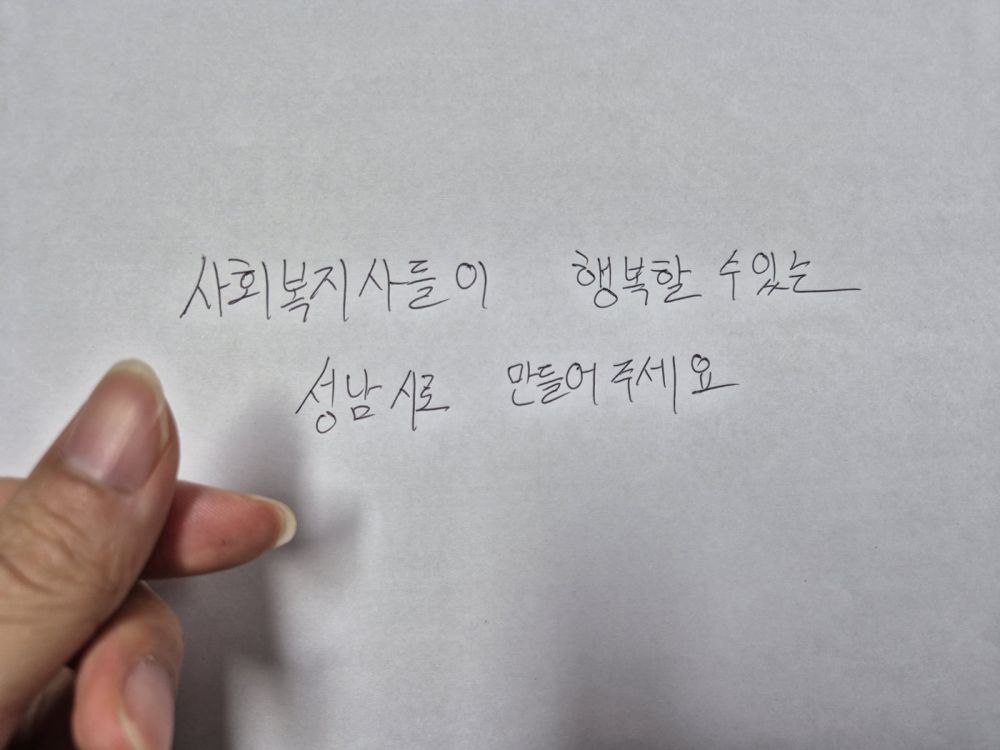 사회복지사들이 행복할 수있는
성남시로 만들어 주세요